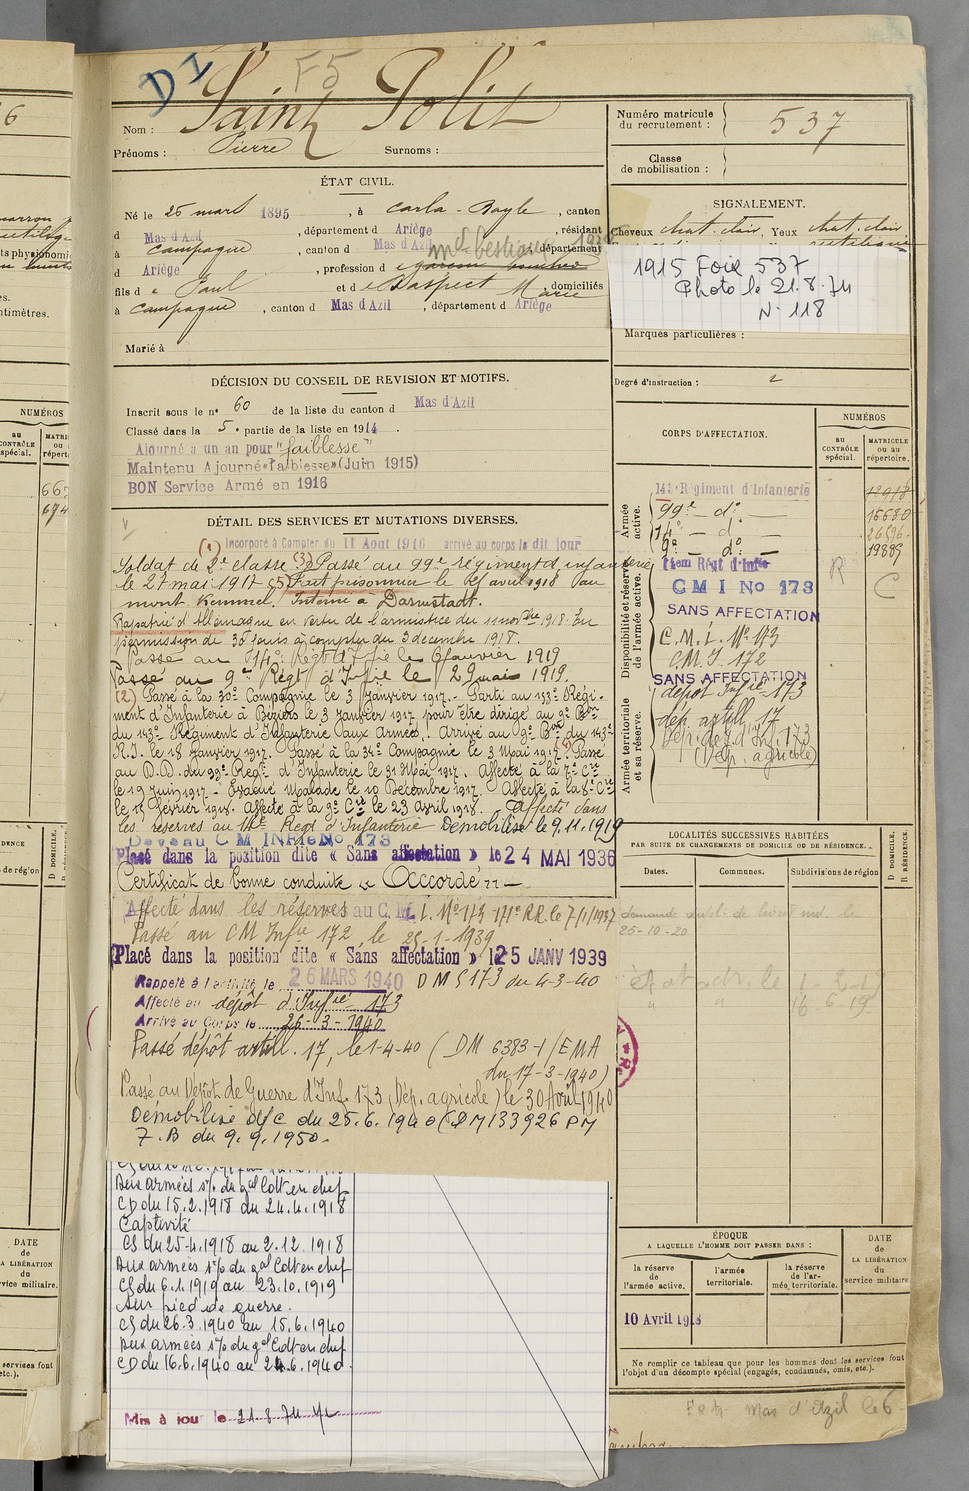 DI
F5
Saint Polit
Nom :
Prénoms : Pierre Surnoms :
Numéro matricule
du recrutement : 537
Classe
de mobilisation :
ÉTAT CIVIL.
Né le 25 mars 1895, à Carla-Bayle, canton
d Mas d'Azil, département d Ariège, résidant
à Campagne, canton d Mas d'Azil, département
d Ariège, profession d
fils d e Paul et d e Daspect Marie, domiciliés
à Campagne, canton d Mas d'Azil, département d Ariège
Marié à
SIGNALEMENT.
Cheveux chat. clair, Yeux chat. clair
1915 Foix 537
Photo le 21.8.74
N. 118
Marques particulières :
Degré d'instruction : 2
DÉCISION DU CONSEIL DE REVISION ET MOTIFS.
Inscrit sous le n° 60 de la liste du canton d Mas d'Azil
Classé dans la 5e partie de la liste en 1914.
Ajourné à un an pour "faiblesse"
Maintenu Ajourné «faiblesse» (Juin 1915)
BON Service Armé en 1916
DÉTAIL DES SERVICES ET MUTATIONS DIVERSES.
(1) Incorporé à Compter du 11 Aout 1916 arrivé au corps le dit jour
Soldat de 2e classe (3) Passé au 99e régiment d'infanterie
le 27 mai 1917 (5) Fait prisonnier le 25 avril 1918 au
mont Kemmel. Interné à Darmstadt.
Rapatrié d'Allemagne en vertu de l'armistice du 11 novbre 1918. En
permission de 30 jours à compter du 3 décembre 1918.
Passé au 14e Régt d'Infie le 6 fauvier 1919
Passé au 9e Régt d'Infie le 29 mai 1919.
(2) Passé à la 30e Compagnie le 3 Janvier 1917.- Parti au 153e Régi-
ment d'Infanterie à Béziers le 3 Janvier 1917 pour être dirigé au 9e Bon
du 143e Régiment d'Infanterie aux Armées. Arrivé au 9e Bon du 143e
R.I. le 18 Janvier 1917. Passé à la 34e Compagnie le 3 Mai 1917. Passé
au D.D. du 99e Régt d'Infanterie le 31 Mai 1917. Affecté à la 7e Cie
le 19 Juin 1917.- Evacué malade le 10 Décembre 1917. Affecté à la 8e Cie
le 15 février 1918. Affecté à la 9e Cie le 23 Avril 1918. Affecté dans
les réserves au 14e Régt d'Infanterie Démobilisé le 9.11.1919
Devenu C M INFIE No 173
Placé dans la position dite « Sans affectation » le 24 MAI 1936
Certificat de bonne conduite "Accordé"
Affecté dans les réserves au C.M.I. No 173 171e RR le 7/1/1937
Passé au CM Infie 172 le 25-1-1939
Placé dans la position dite « Sans affectation » le 25 JANV 1939
Rappelé à l'activité le 26 MARS 1940 DM S173 du 4-3-40
Affecté au dépôt d'Infie 173
Arrivé au Corps le 26-3-1940
Passé dépôt artill. 17, le 1-4-40 (DM 6383-1/EMA
du 17-3-1940)
Passé au Dépôt de Guerre d'Inf. 173 (Dép. agricole) le 30 Avril 1940
Démobilisé dfc du 25.6.1940 (DM 133926 PM
7.B du 9.9.1950.
Aux armées s/s du gal Cdt en chef
CD du 15.2.1918 au 24.4.1918
Captivité
CS du 25-4.1918 au 2.12.1918
Aux armées s/s du gal Cdt en chef
CS du 6.1.1919 au 23.10.1919
Sur pied de guerre.
CS du 26.3.1940 au 15.6.1940
Aux armées s/s du gal Cdt en chef
CD du 16.6.1940 au 24.6.1940.
Mis à jour le 21.8.74
CORPS D'AFFECTATION.
NUMÉROS
au
CONTRÔLE
spécial.
MATRICULE
ou au
répertoire.
Armée
active.
143e Régiment d'Infanterie 12918
99e - do - 15680
14e - do - 26596
9e - do - 19889
Disponibilité et réserve
de l'armée active.
14em Régt d'Infie
C M I No 173
SANS AFFECTATION
C.M.I. No 173
CM.I. 172
SANS AFFECTATION
R
C
Armée territoriale
et sa réserve.
dépôt Infie 173
dép. artill 17
Dép. de g. d'Inf. 173
(Dép. agricole)
LOCALITÉS SUCCESSIVES HABITÉES
PAR SUITE DE CHANGEMENTS DE DOMICILE OU DE RÉSIDENCE.
Dates.
Communes.
Subdivisions de région
D. DOMICILE.
R. RÉSIDENCE.
25-10-20
ÉPOQUE
A LAQUELLE L'HOMME DOIT PASSER DANS :
la réserve
de
l'armée active.
l'armée
territoriale.
la réserve
de l'ar-
mée territoriale.
DATE
de
LA LIBÉRATION
du
service militaire.
10 Avril 1928
Ne remplir ce tableau que pour les hommes dont les services font
l'objet d'un décompte spécial (engagés, condamnés, omis, etc.).
Mas d'Azil le 6